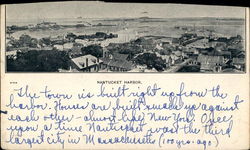 NANTUCKET HARBOR.
The town is built right up from the
harbor. Houses are built smack up against
each other – almost like New York. Once
upon a time Nantucket was the third
largest city in Massachusetts (150 yrs. ago)